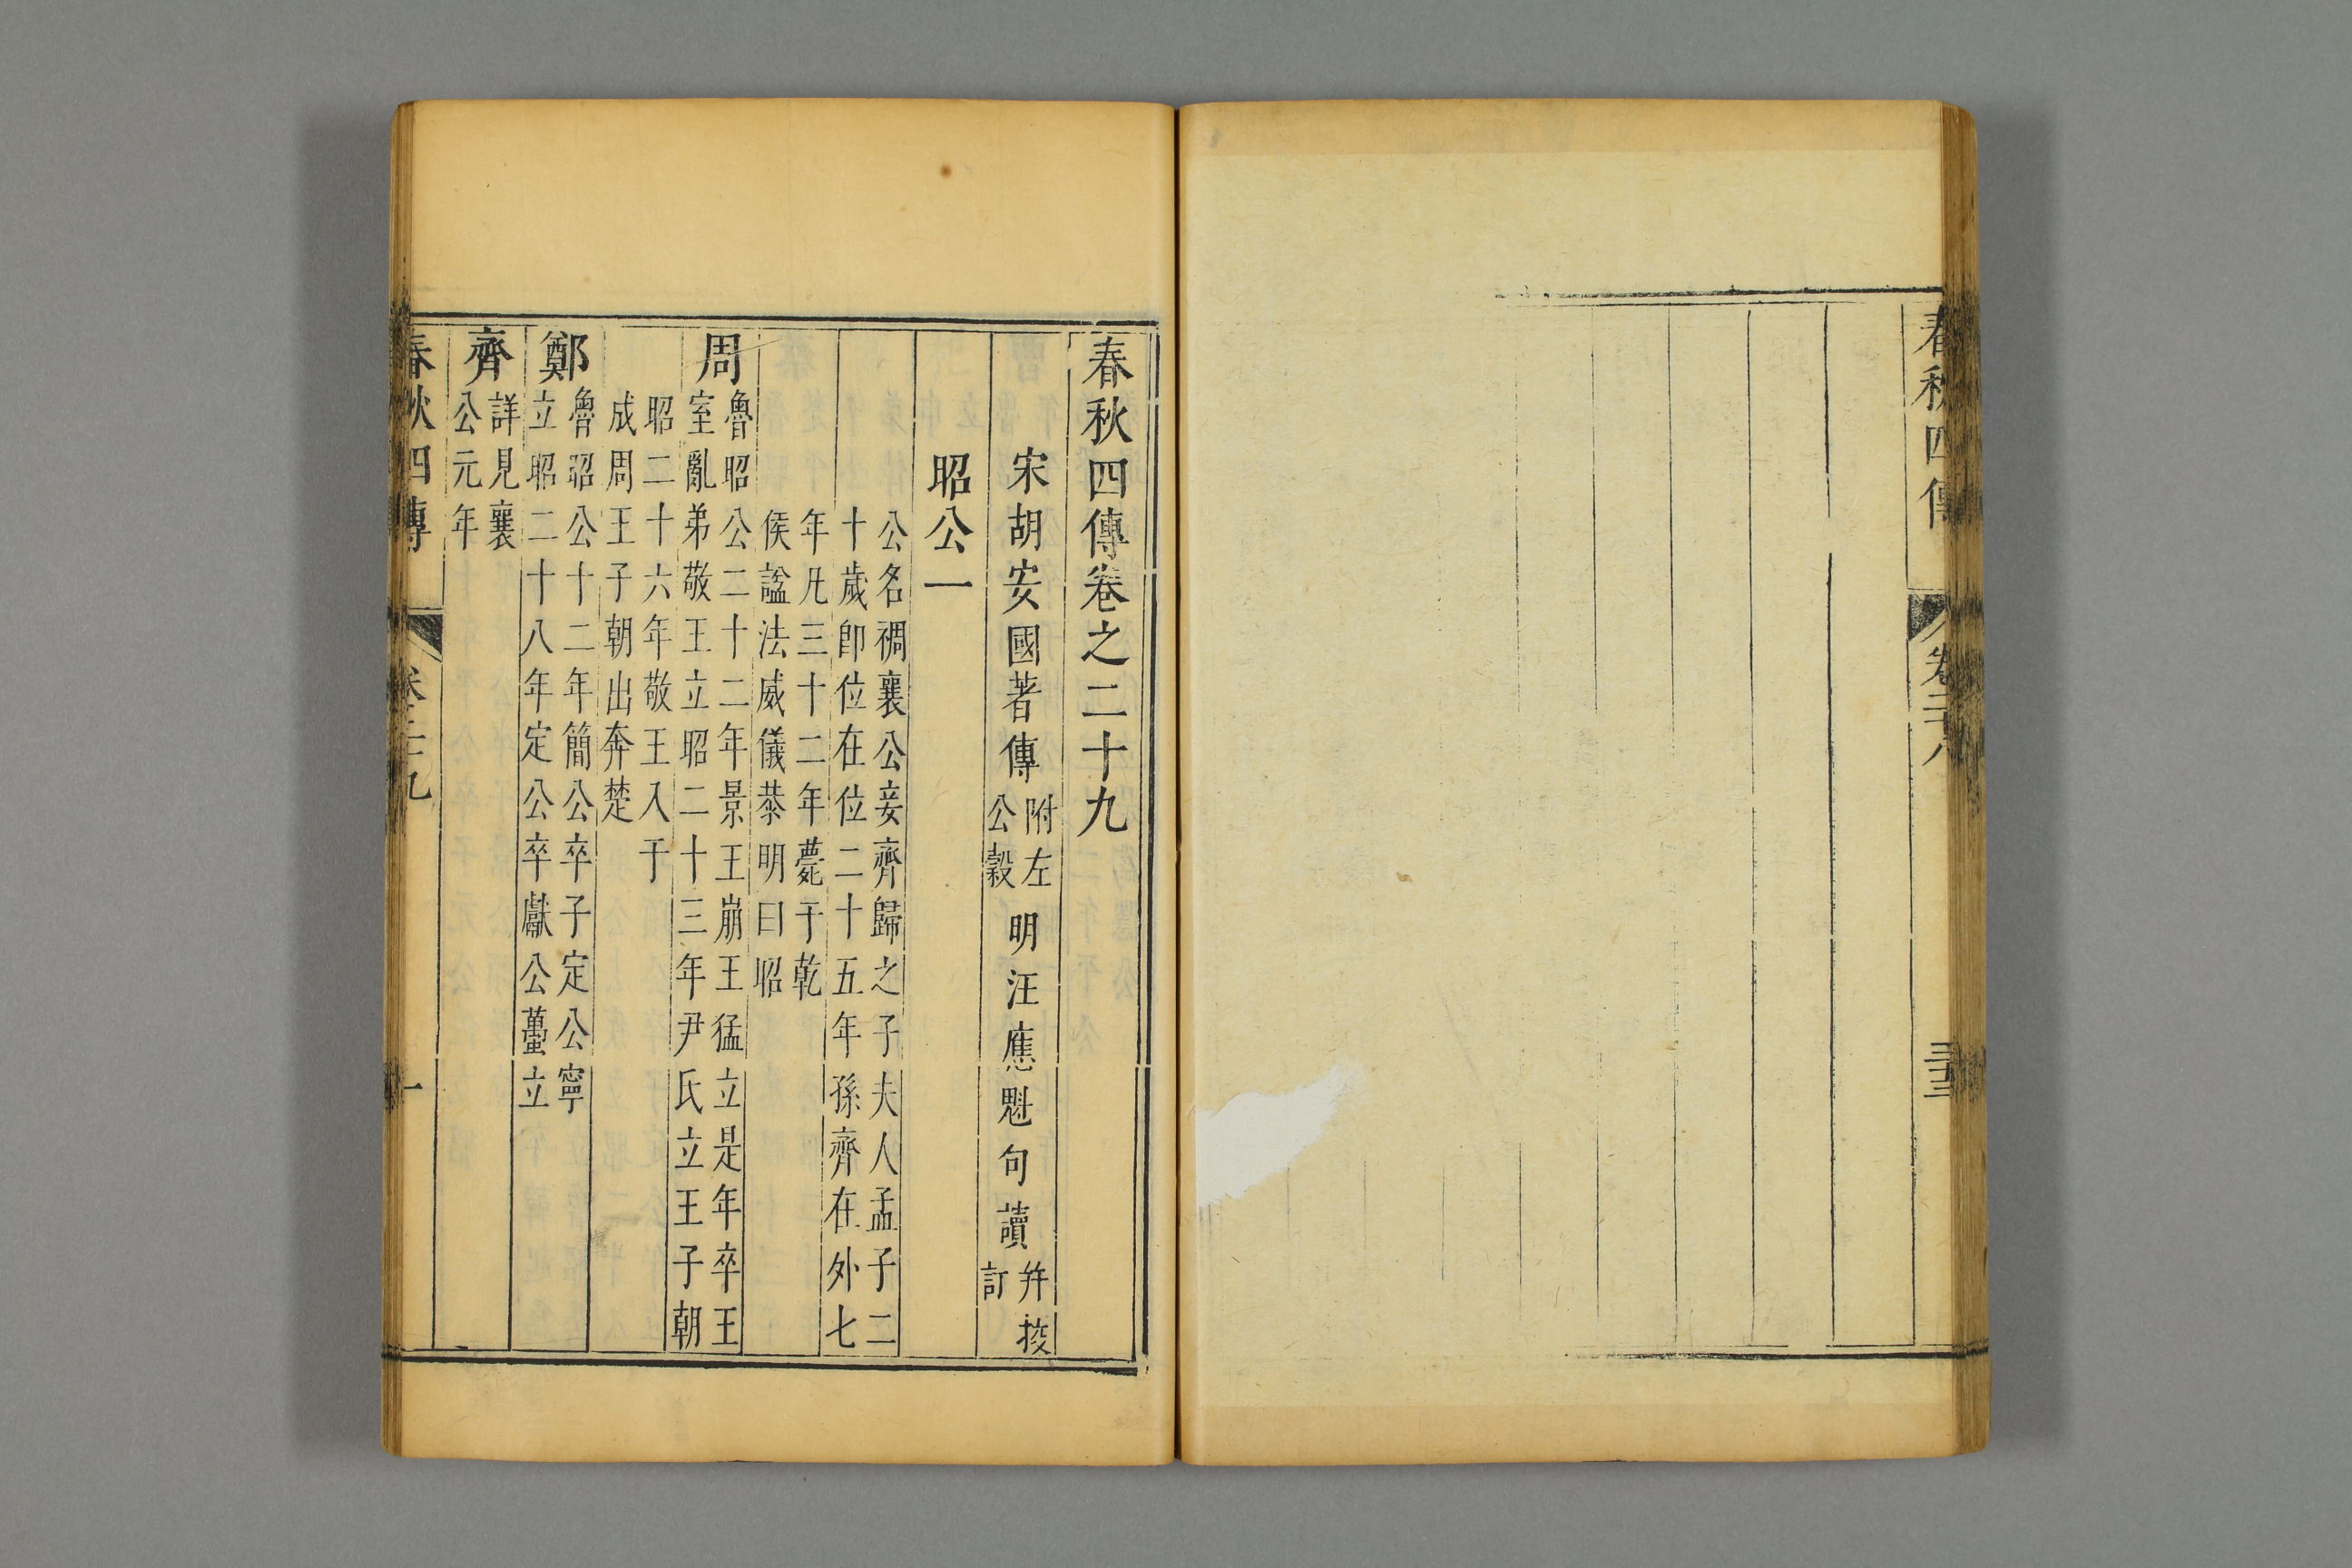 春秋四傳
卷二十八
春秋四傳卷之二十九
宋胡安國著傳附左公穀 明汪應魁句讀并挍訂
昭公一
公名裯襄公妾齊歸之子夫人孟子二
十歲即位在位二十五年孫齊在外七
年凡三十二年薨于乾
侯諡法威儀恭明曰昭
周
魯昭公二十二年景王崩王猛立是年卒王
室亂弟敬王立昭二十三年尹氏立王子朝
昭二十六年敬王入于
成周王子朝出奔楚
鄭
魯昭公十二年簡公卒子定公寧
立昭二十八年定公卒獻公蠆立
齊
詳見襄
公元年
春秋四傳
卷二十九
一